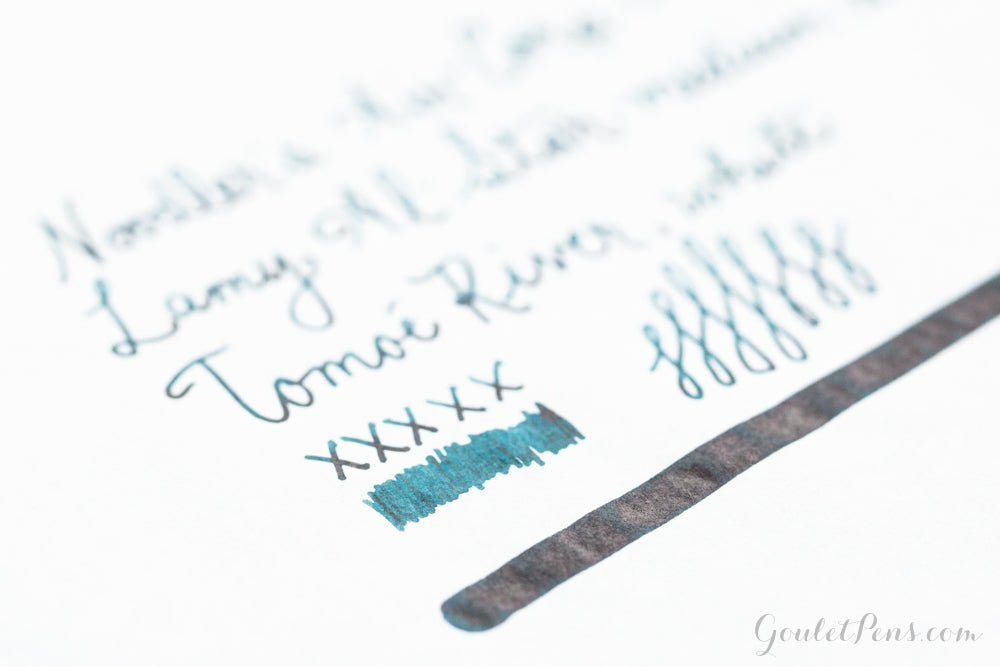 Noodler's Air Corp
Lamy Al-Star, medium
Tomoé River, white
xxxxx
GouletPens.com